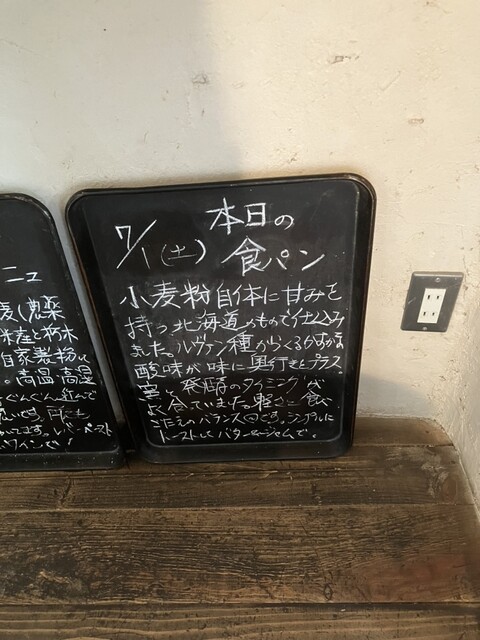 ニュ
麦(農薬
米産と栃木
自家製粉し
。高温・高湿
ぐんぐん
ワインで!
本日の
7/1(土) 食パン
小麦粉自体に甘みを
持つ北海道のもので仕込み
ました。ルヴァン種からくるわずかな
酸味が味に奥行きをプラス。
窯、発酵のタイミングが
よく合っていました。軽さと食べ
ごたえのバランス◎です。シンプルに
トーストしてバターやジャムで。